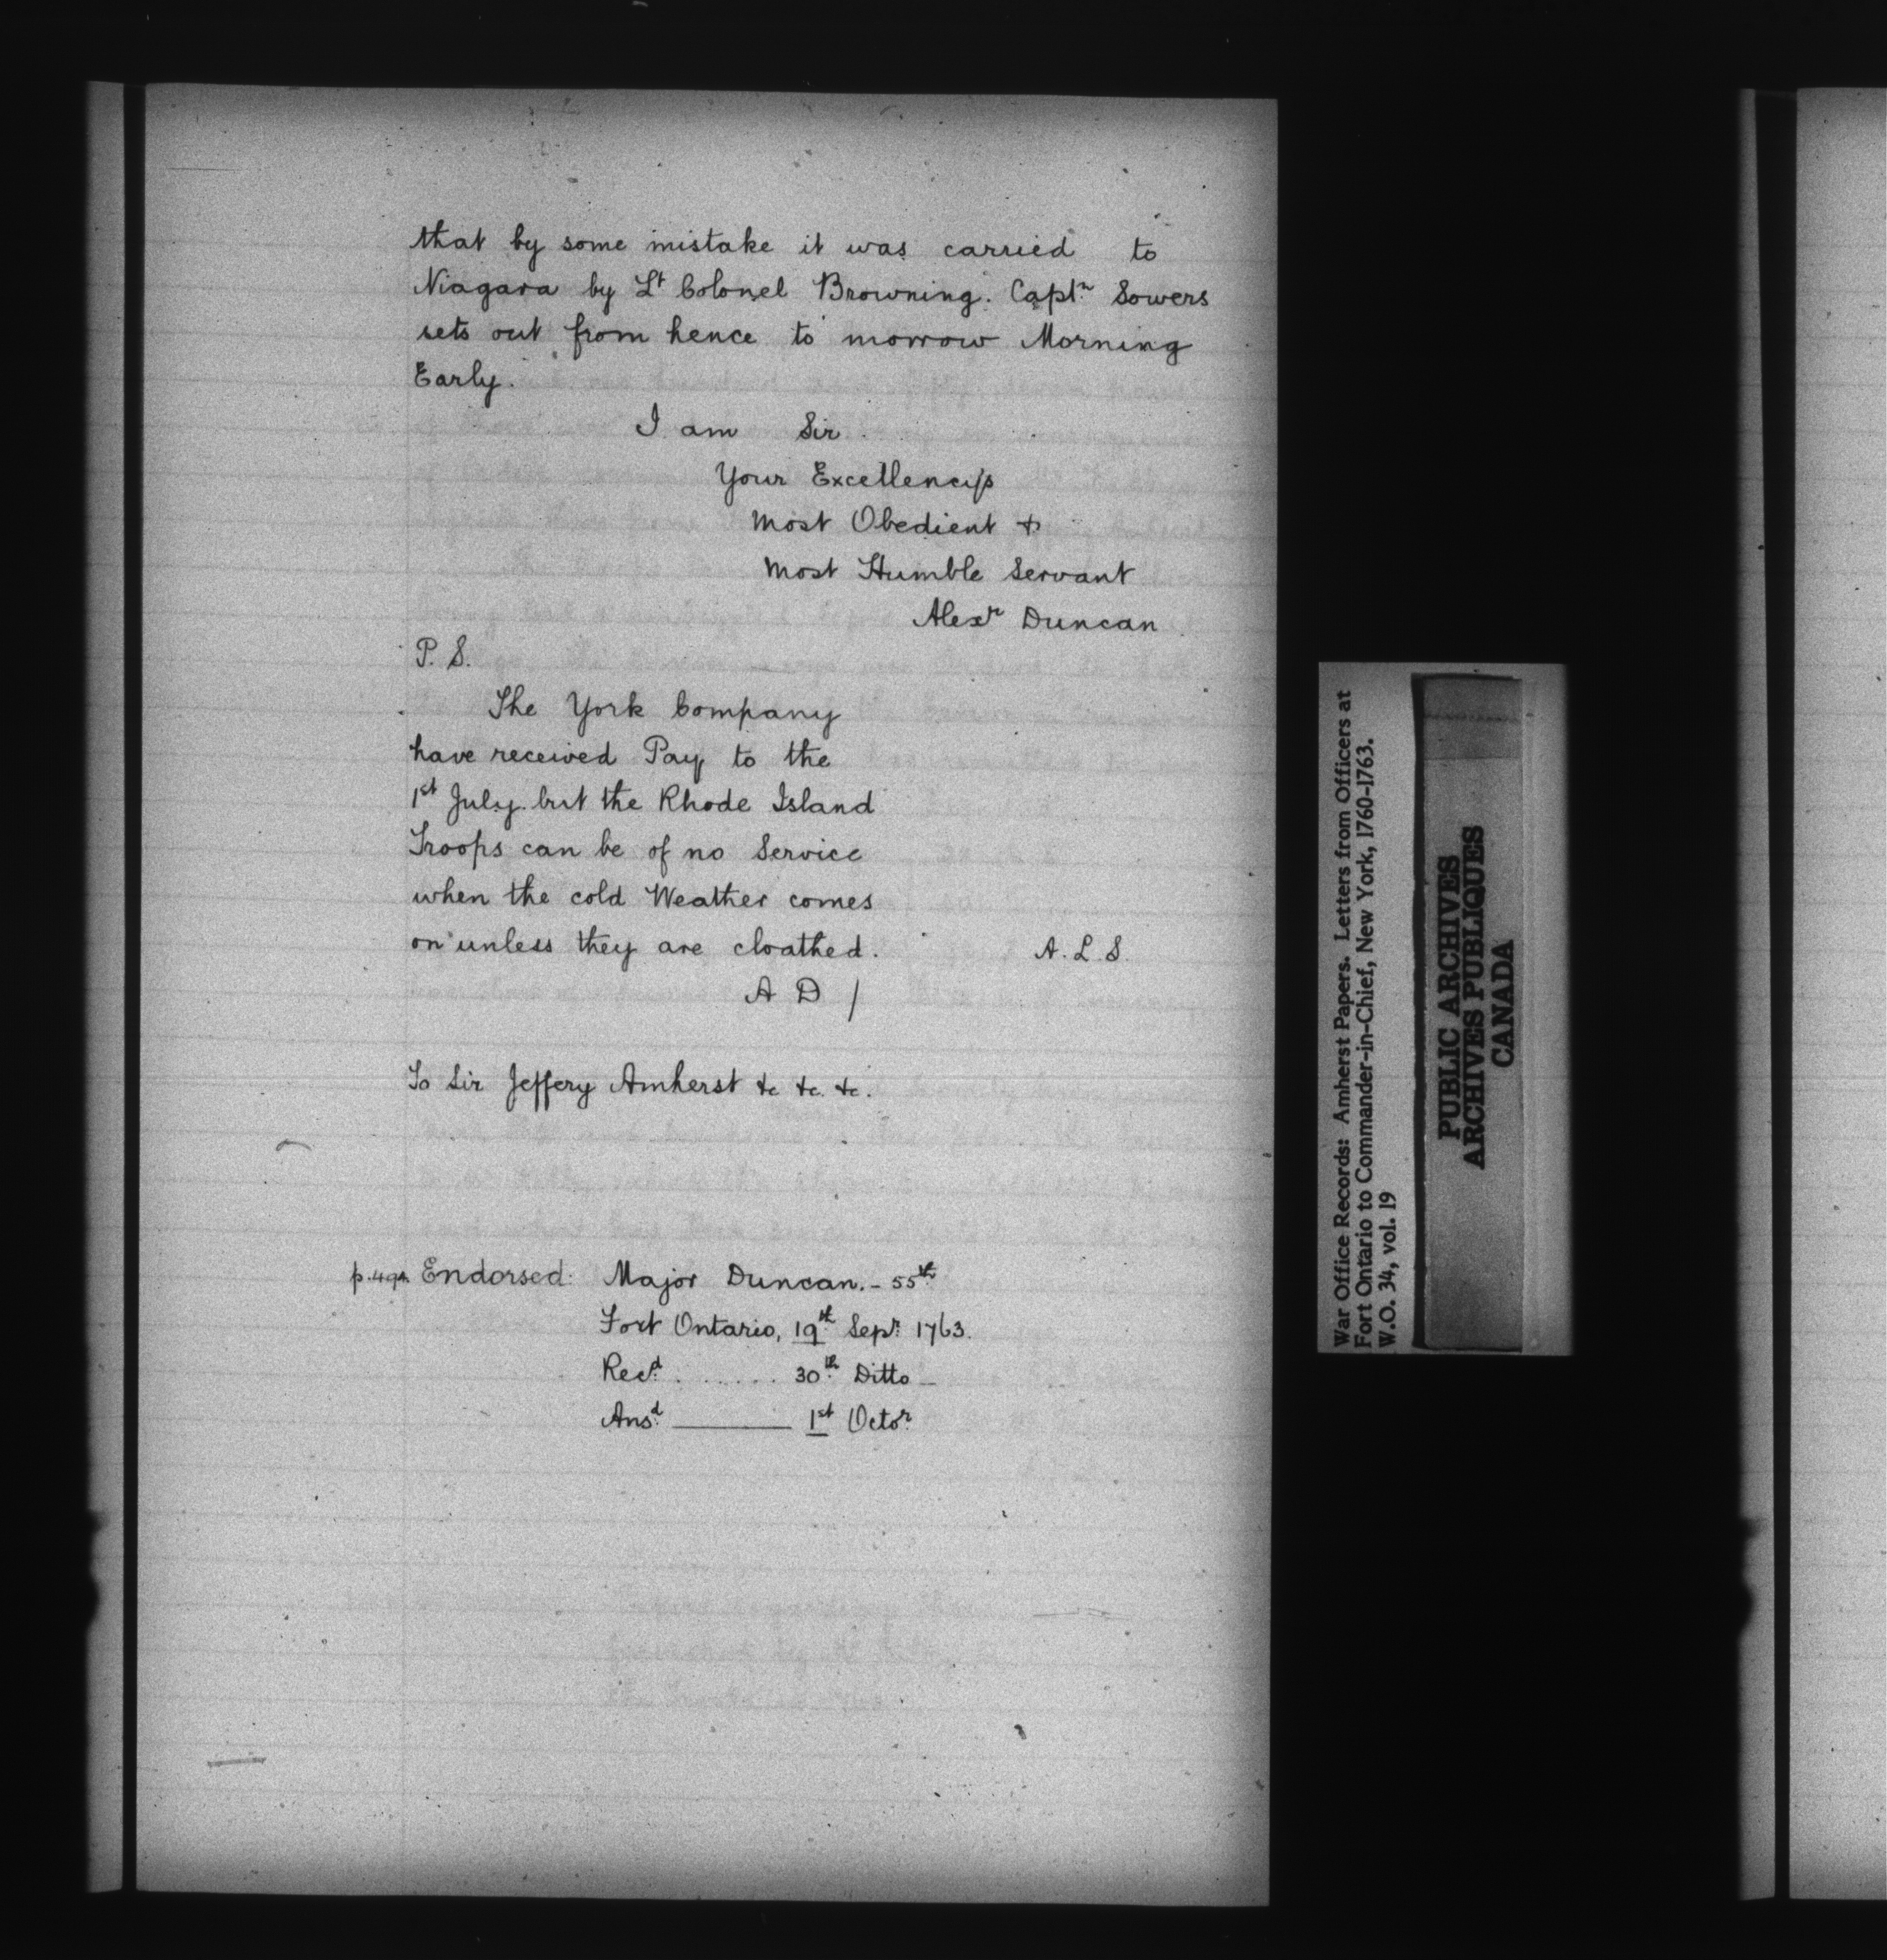 that by some mistake it was carried to
Niagara by Lt Colonel Browning. Captn Sowers
sets out from hence to morrow Morning
Early.
I am Sir
Your Excellencys
Most Obedient &
Most Humble Servant
Alexr Duncan
P. S.
The York Company
have received Pay to the
1st July but the Rhode Island
Troops can be of no Service
when the cold Weather comes
on unless they are cloathed.
A. L. S.
A D /
To Sir Jeffery Amherst &c &c. &c.
Endorsed: Major Duncan. - 55th
Fort Ontario, 19th Sepr 1763.
Recd. ...... 30th Ditto -
Ansd. ——— 1st Octor
War Office Records: Amherst Papers. Letters from Officers at
Fort Ontario to Commander-in-Chief, New York, 1760-1763.
W.O. 34, vol. 19
PUBLIC ARCHIVES
ARCHIVES PUBLIQUES
CANADA